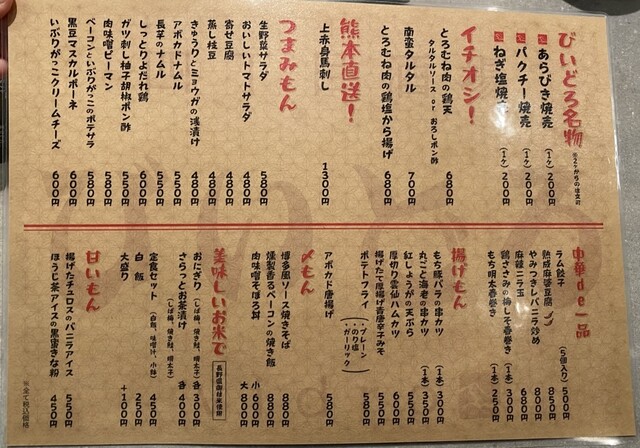 びいどろ名物
※2ケからの注文可
あらびき焼売 (1ケ) 200円
パクチー焼売 (1ケ) 200円
ねぎ塩焼売 (1ケ) 200円
イチオシ!
とろむね肉の鶏天 680円
タルタルソース or おろしポン酢
南蛮タルタル 700円
とろむね肉の鶏塩から揚げ 680円
熊本直送!
上赤身馬刺し 1300円
つまみもん
生野菜サラダ 580円
おいしいトマトサラダ 480円
寄せ豆腐 480円
蒸し枝豆 400円
きゅうりとミョウガの浅漬け 480円
アボカドナムル 550円
長芋のナムル 500円
しっとりよだれ鶏 600円
ガツ刺し柚子胡椒ポン酢 550円
肉味噌ピーマン 580円
ベーコンといぶりがっこのポテサラ 580円
黒豆マスカルポーネ 600円
いぶりがっこクリームチーズ 600円
中華de一品
ラム餃子 (5個入り) 500円
熟成麻婆豆腐 850円
やみつきレバニラ炒め 800円
麻辣ニラ玉 680円
鶏ささみの梅しそ春巻き (1本) 300円
もち明太春巻き (1本) 250円
揚げもん
もち豚バラの串カツ (1本) 300円
丸ごと海老の串カツ (1本) 350円
紅しょうがの天ぷら 500円
厚切り雲仙ハムカツ 600円
揚げたて厚揚げ青唐辛子みそ 550円
ポテトフライ 550円
(・プレーン
・のり塩
・ガーリック)
アボカド唐揚げ 580円
〆もん
博多風ソース焼きそば 880円
燻製香るベーコンの焼き飯 880円
肉味噌そぼろ丼 小 600円
大 800円
美味しいお米で
長野県御牧米使用
おにぎり (しば梅、焼き鮭、明太子) 各 300円
さらっとお茶漬け (しば梅、焼き鮭、明太子) 各 400円
定食セット (白飯、味噌汁、小鉢) 450円
白飯 250円
大盛り +100円
甘いもん
揚げたチュロスのバニラアイス 550円
ほうじ茶アイスの黒蜜きな粉 450円
※全て税込価格